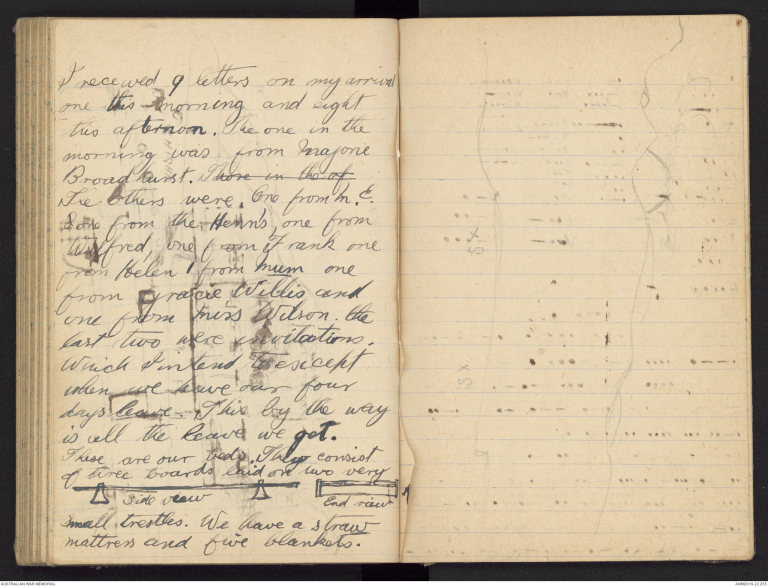 I received 9 letters on my arrival
one this morning and eight
this afternoon. The one in the
morning was from Majorie
Broadhurst. Those in the of
The others were. One from M. E.
one from the Henn's, one from
Wilfred, one from Frank one
from Helen 1 from mum one
from Gracie Willis and
one from Miss Wilson. the
last two were invitations.
Which I intend to except
when we have our four
days leave. This by the way
is all the leave we get.
These are our beds. They consist
of three boards laid on two very
Side view End view
small trestles. We have a straw
mattress and five blankets.
AUSTRALIAN WAR MEMORIAL